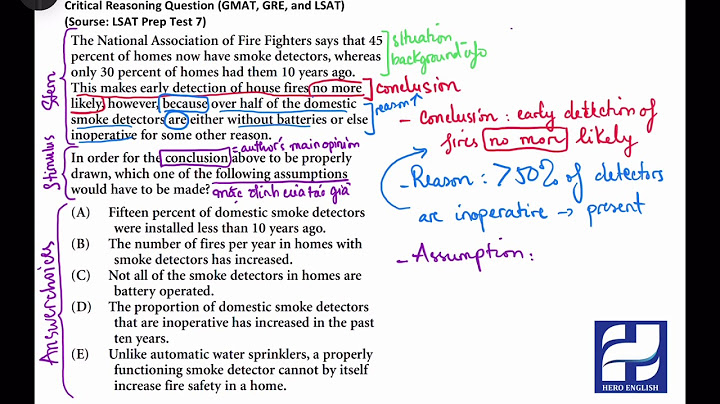 Critical Reasoning Question (GMAT, GRE, and LSAT)
(Sourse: LSAT Prep Test 7)
The National Association of Fire Fighters says that 45
percent of homes now have smoke detectors, whereas
only 30 percent of homes had them 10 years ago.
This makes early detection of house fires no more
likely, however, because over half of the domestic
smoke detectors are either without batteries or else
inoperative for some other reason.
situation
background info
conclusion
reason
Stem
In order for the conclusion above to be properly
drawn, which one of the following assumptions
would have to be made?
= author's main opinion
mặc định của tác giả
Stimulus
(A) Fifteen percent of domestic smoke detectors
were installed less than 10 years ago.
(B) The number of fires per year in homes with
smoke detectors has increased.
(C) Not all of the smoke detectors in homes are
battery operated.
(D) The proportion of domestic smoke detectors
that are inoperative has increased in the past
ten years.
(E) Unlike automatic water sprinklers, a properly
functioning smoke detector cannot by itself
increase fire safety in a home.
Answer choices
- Conclusion: early detection of
fires no more likely
- Reason: >50% of detectors
are inoperative → present
- Assumption:
HERO ENGLISH